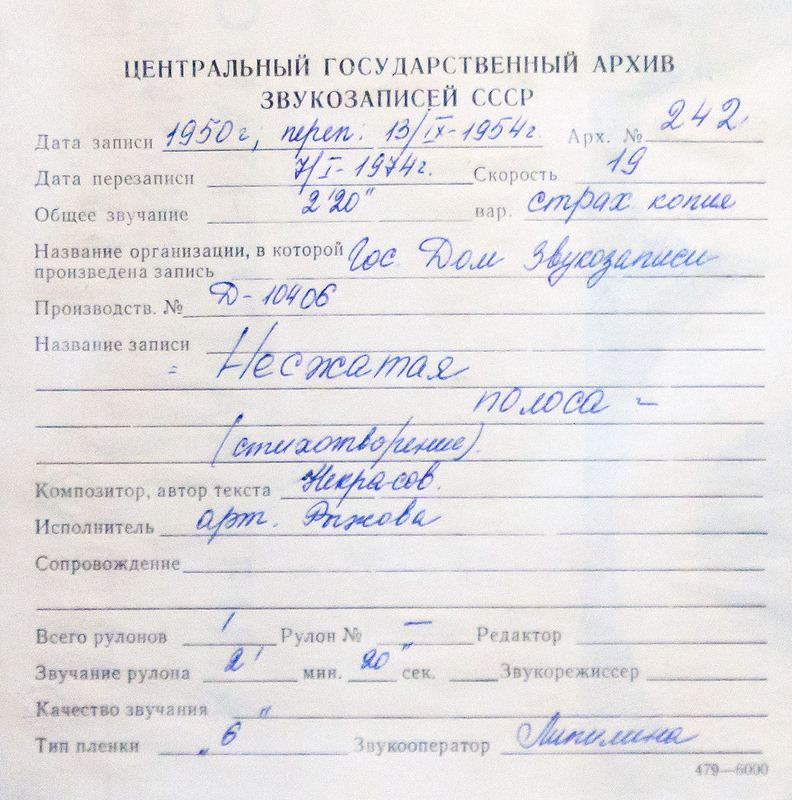 ЦЕНТРАЛЬНЫЙ ГОСУДАРСТВЕННЫЙ АРХИВ
ЗВУКОЗАПИСЕЙ СССР
Дата записи 1950 г, переп. 13/IX-1954г. Арх. № 242
Дата перезаписи 7/I-1974г. Скорость 19
Общее звучание 2'20" вар. страх. копия
Название организации, в которой Гос Дом Звукозаписи
произведена запись
Производств. № Д-10406
Название записи
= Несжатая
полоса =
(стихотворение).
Композитор, автор текста Некрасов.
Исполнитель арт. Рыжова
Сопровождение
Всего рулонов 1 Рулон № — Редактор
Звучание рулона 2' мин. 20" сек. Звукорежиссер
Качество звучания "
Тип пленки „6 Звукооператор Липилина
479—6000